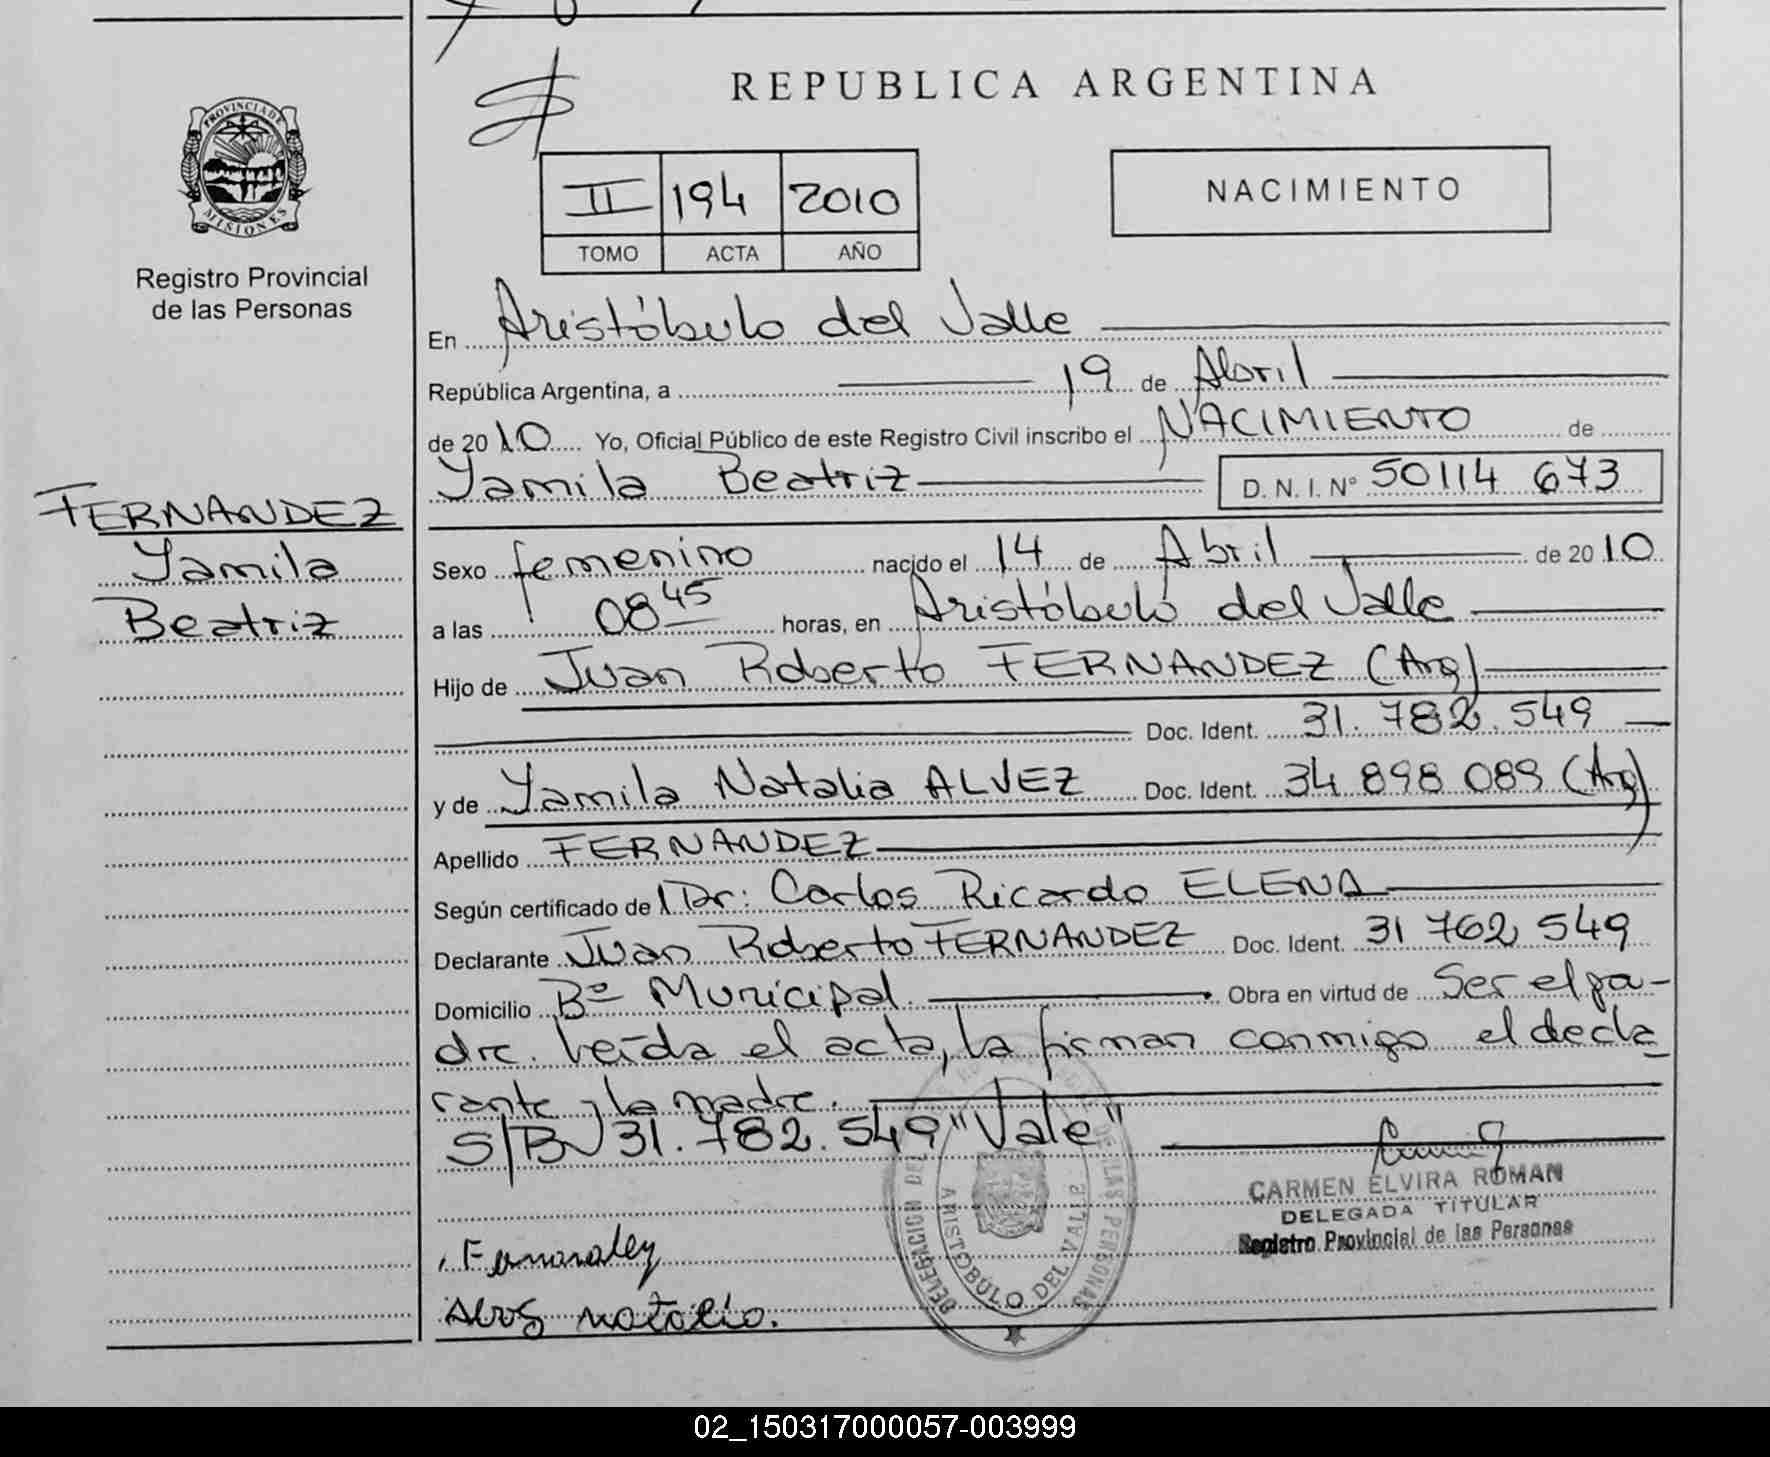 REPUBLICA ARGENTINA
PROVINCIA DE
MISIONES
Registro Provincial
de las Personas
II 194 2010
TOMO ACTA AÑO
NACIMIENTO
En Aristóbulo del Valle
República Argentina, a 19 de Abril
de 2010 Yo, Oficial Público de este Registro Civil inscribo el NACIMIENTO de
Yamila Beatriz D. N. I. Nº 50114 673
FERNANDEZ
Yamila
Beatriz
Sexo femenino nacido el 14 de Abril de 2010
a las 08 45 horas, en Aristóbulo del Valle
Hijo de Juan Roberto FERNANDEZ (Arg)
Doc. Ident. 31.782.549
y de Yamila Natalia ALVEZ Doc. Ident. 34 898 089 (Arg)
Apellido FERNANDEZ
Según certificado de Dr: Carlos Ricardo ELENA
Declarante Juan Roberto FERNANDEZ Doc. Ident. 31 762 549
Domicilio Bº Municipal. Obra en virtud de Ser el pa-
dre. Leída el acta, la firman conmigo el decla
rante y la madre.
S/B 31.782.549 "Vale"
CARMEN ELVIRA ROMAN
DELEGADA TITULAR
Registro Provincial de las Personas
DELEGACION DEL DE LAS PERSONAS
ARISTOBULO DEL VALLE
02_150317000057-003999